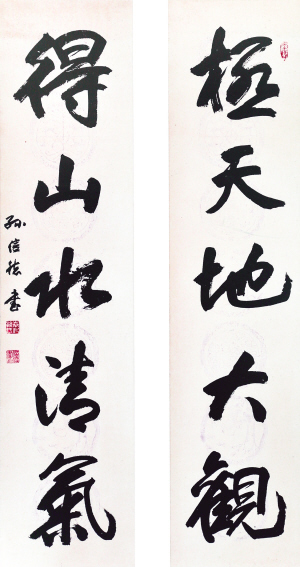 極天地大觀
得山水清氣
孫信德書